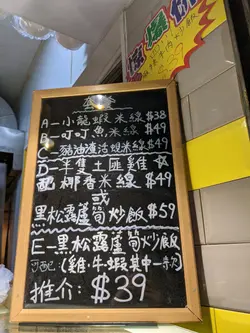 套餐
A－小龍蝦米線$38
B－叮叮魚米線$49
C－豬油渣活蜆米線$49
D－半隻土匪雞
配椰香米線$49
或
黑松露蘆筍炒飯$59
E－黑松露蘆筍炒飯
可配(雞·牛·蝦其中一款)
推介：$39